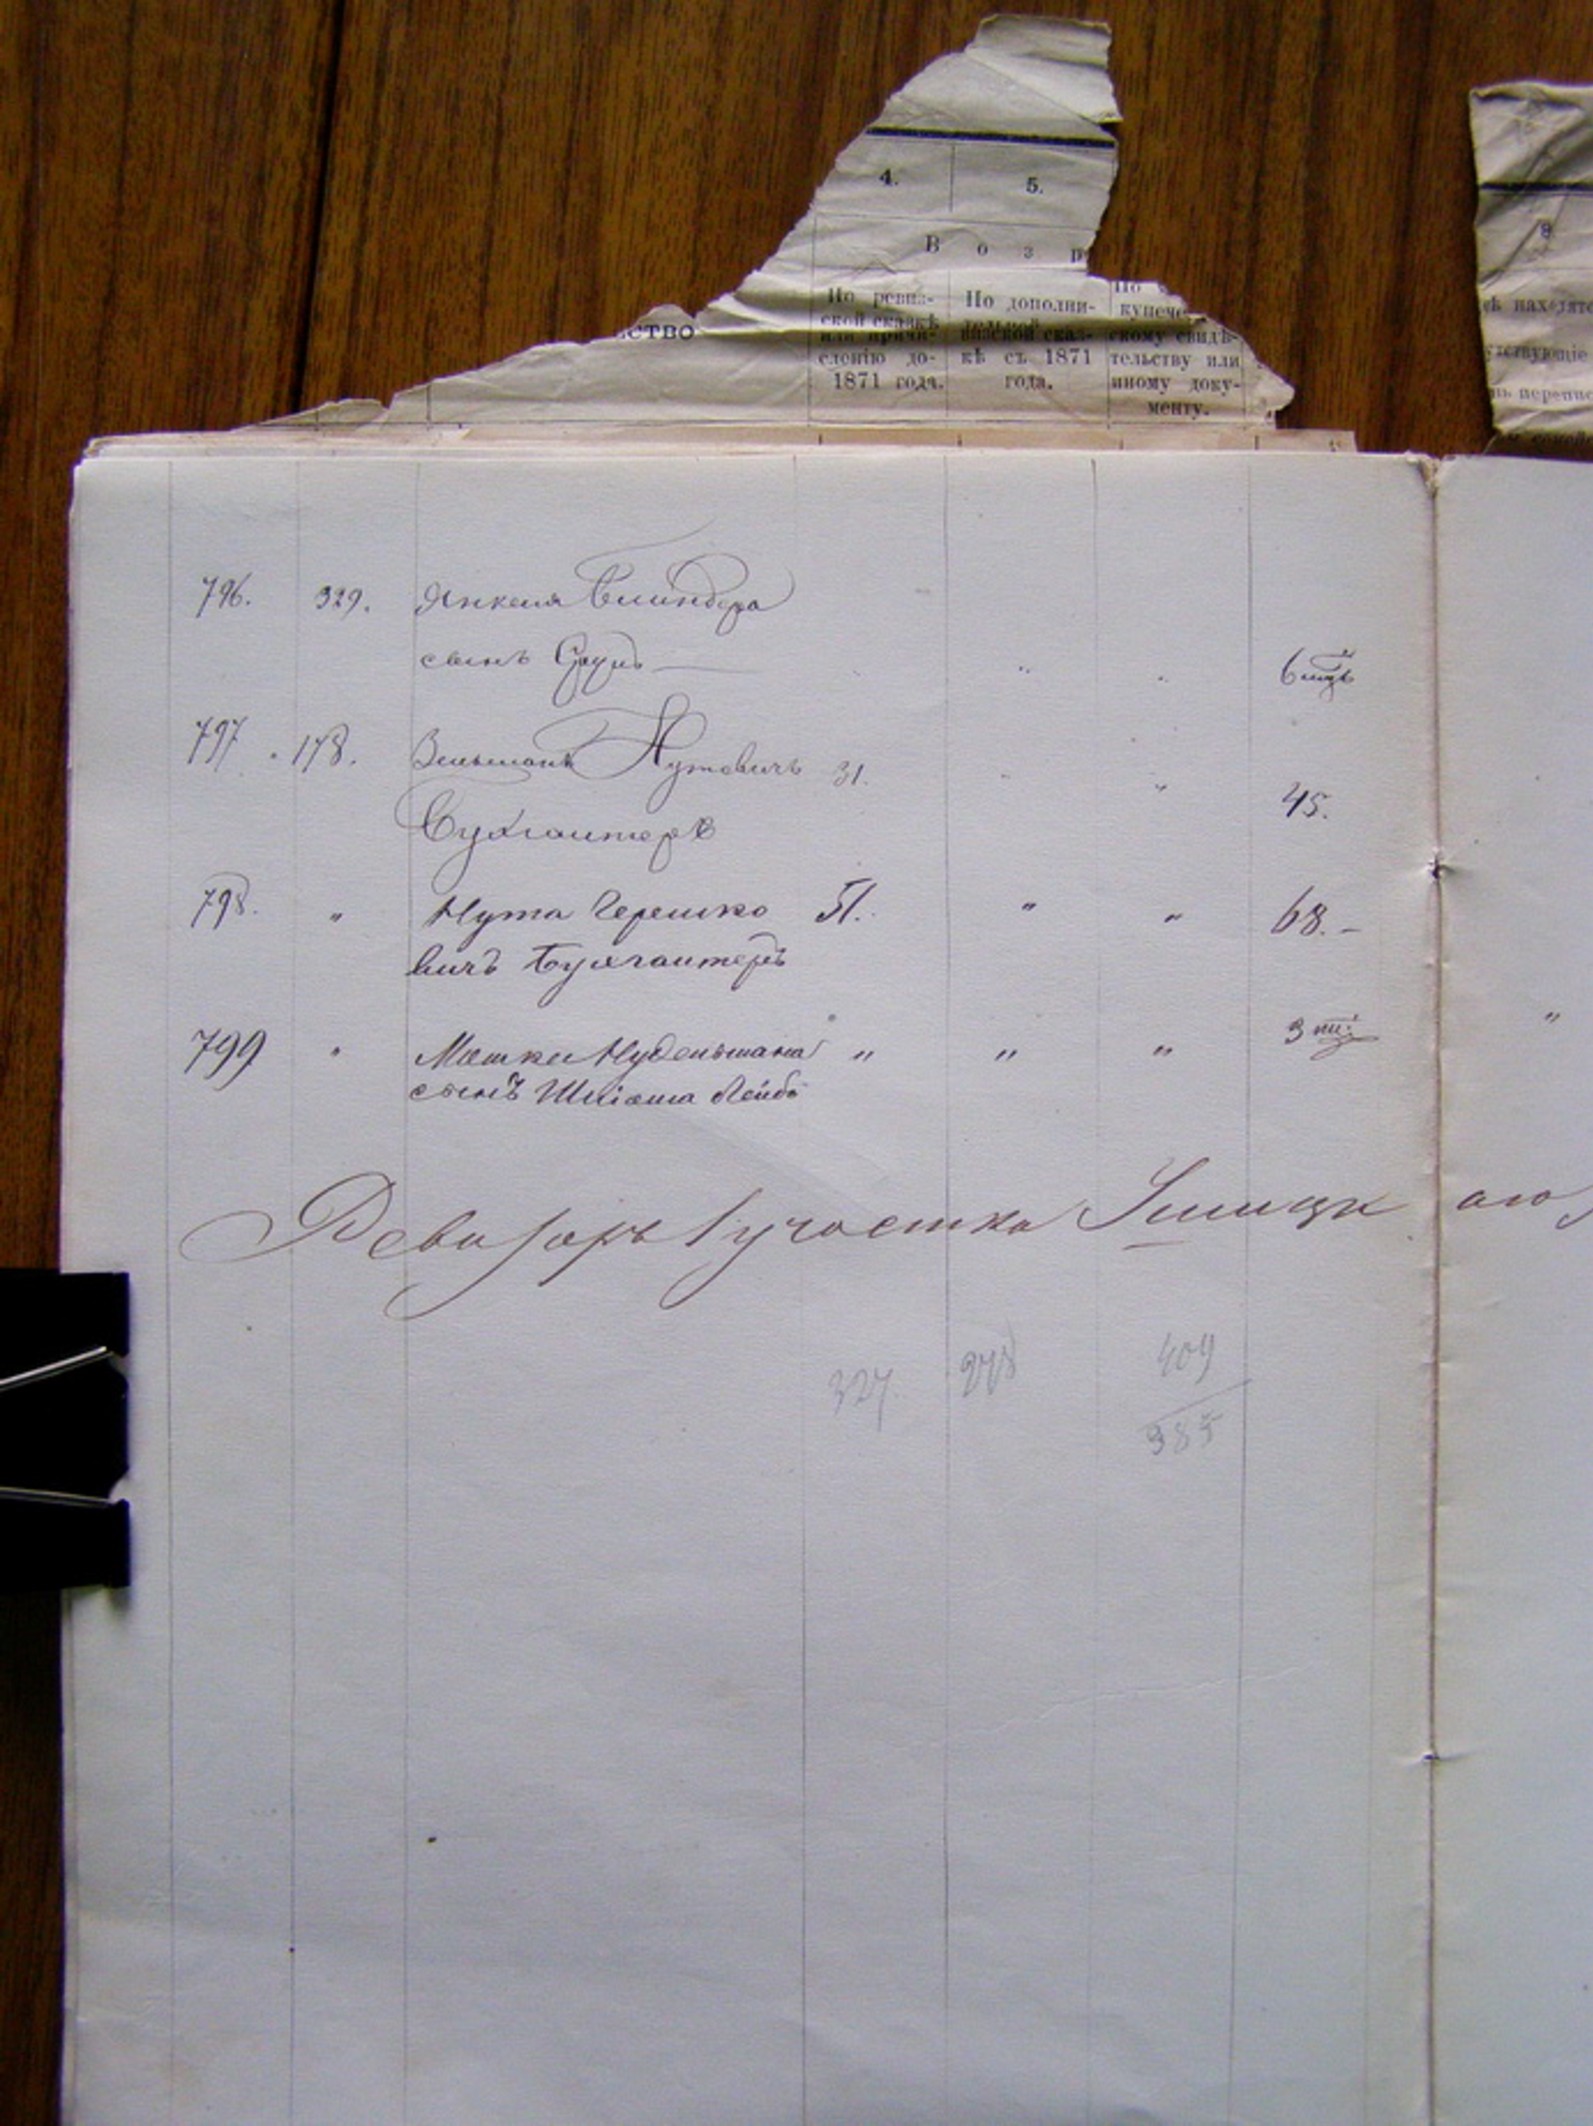 4. 5.
В о з р
ство
По ревиз-
ской сказкѣ
или причи-
сленію до-
1871 года.
По дополни-
тельной
визской сказ-
кѣ съ 1871
года.
По
купече-
скому свидѣ-
тельству или
иному доку-
менту.
8
ѣ находятс
утствующіе
ь перепис
796. 329. Янкеля Блиндера
сынъ 6 мцъ
797 178. Зельманъ Нутовичъ 31.
Бухгалтеръ 45.
798. " Нута Гершко 51. " " 68.
вичъ Бухгалтеръ
799 " Мошка Нудельмана " " " 3 "
сынъ Шліома Лейба
Ревизоръ 1 участка Ушицк ого
327. 278 409
385